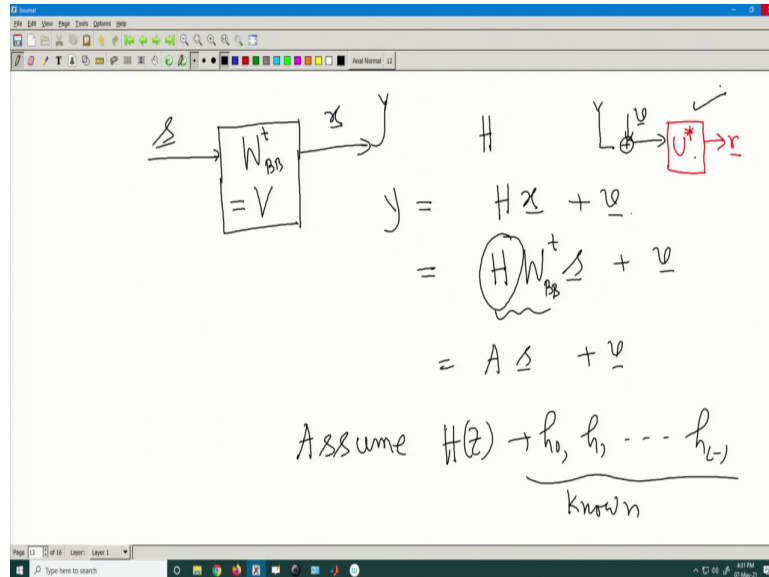 Xournal
File Edit View Page Tools Options Help
Arial Normal 12
s W^t_{BB} = V x H v U* r
y = H x + v
= H W^t_{BB} s + v
= A s + v
Assume H(z) → h_0, h_1 --- h_{L-1}
Known
Page 13 of 16 Layer: Layer 1
Type here to search
4:31 PM
07-May-21